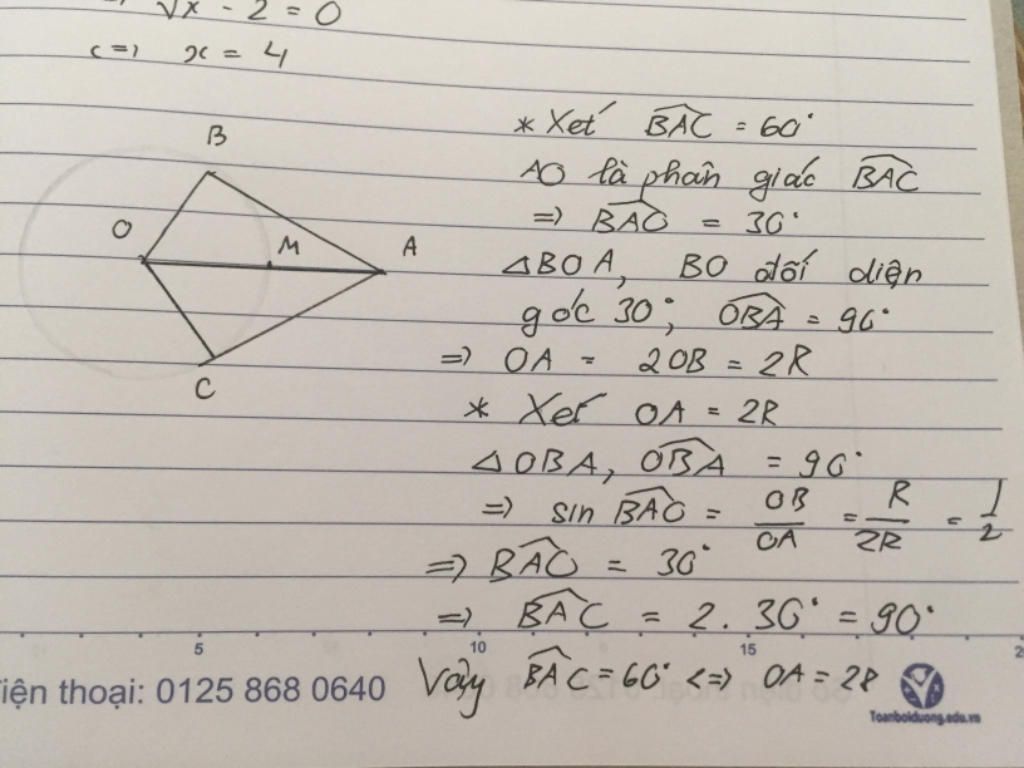 √x - 2 = 0
<=> x = 4
B
O
M
A
C
* Xét B̂AC = 60°
AO là phân giác B̂AC
=> B̂AO = 30°
△BOA, BO đối diện
góc 30°, ÔBA = 90°
=> OA = 2OB = 2R
* Xét OA = 2R
△OBA, ÔBA = 90°
=> sin B̂AO = OB/OA = R/2R = 1/2
=> B̂AO = 30°
=> B̂AC = 2. 30° = 90°
Vậy B̂AC = 60° <=> OA = 2R
5 10 15
iện thoại: 0125 868 0640
Toanboiduong.edu.vn